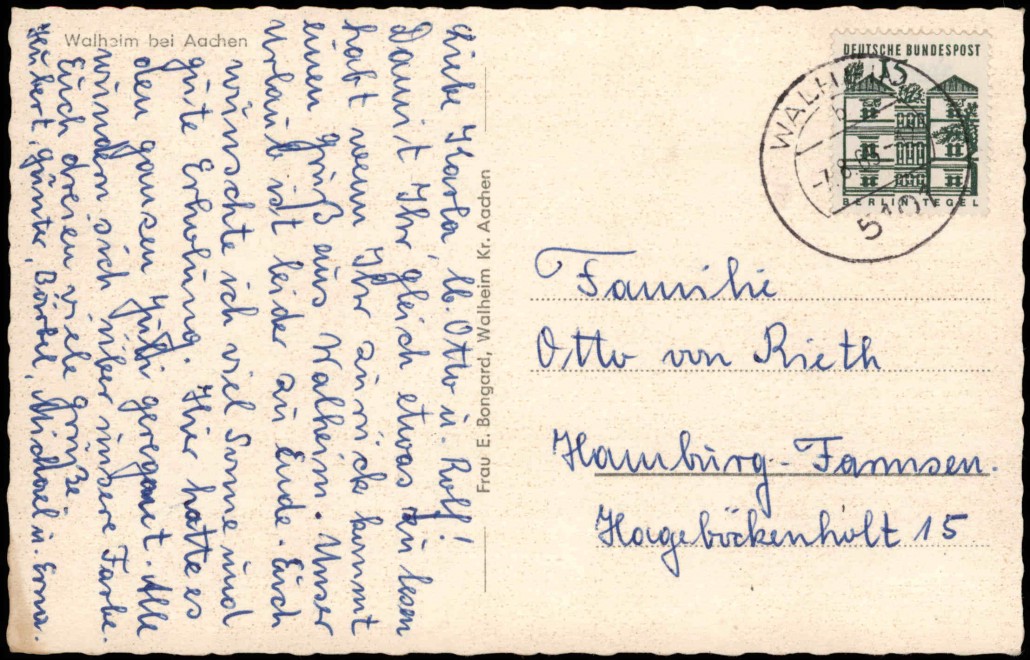 Walheim bei Aachen
Liebe Karla, lb. Otto u. Rolf!
Damit Ihr gleich etwas zu lesen
habt wenn Ihr zurück kommt
einen gruß aus Walheim. Unser
Urlaub ist leider zu Ende. Euch
wünschte ich viel Sonne und
gute Erholung. Hier hatte es
den ganzen Juli geregnet. Alle
wundern sich über unsere Farbe.
Euch dreien viele grüße.
Hubert, günter, Bärbel, Michael u. Erna.
Frau E. Bongard, Walheim Kr. Aachen
DEUTSCHE BUNDESPOST
15
BERLIN TEGEL
WALH
5101
Familie
Otto von Rieth
Hamburg-Farmsen.
Hageböckenholt 15